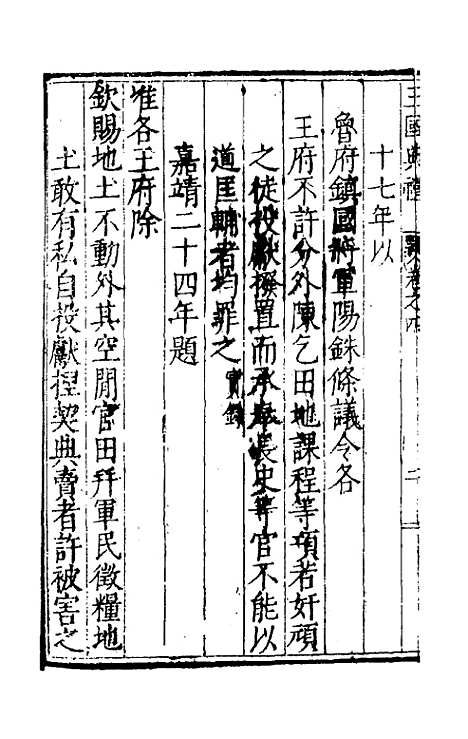 王國典禮 卷之四 二
十七年以
魯府鎮國將軍陽銖條議令各
王府不許分外陳乞田地課程等項若奸頑
之徒投獻撥置而承奉長史等官不能以
道匡輔者均罪之實錄
嘉靖二十四年題
准各王府除
欽賜地土不動外其空閒官田并軍民徵糧地
土敢有私自投獻捏契典賣者許被害之